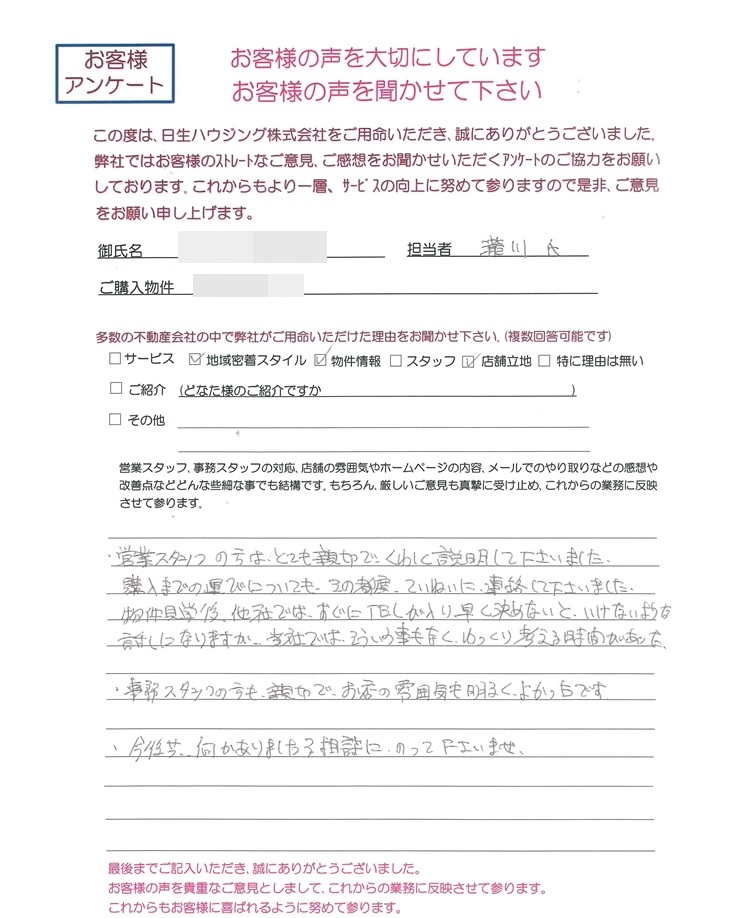 お客様
アンケート
お客様の声を大切にしています
お客様の声を聞かせて下さい
この度は、日生ハウジング株式会社をご用命いただき、誠にありがとうございました。
弊社ではお客様のｽﾄﾚｰﾄなご意見、ご感想をお聞かせいただくｱﾝｹｰﾄのご協力をお願い
しております。これからもより一層、ｻｰﾋﾞｽの向上に努めて参りますので是非、ご意見
をお願い申し上げます。
御氏名 担当者 瀧川 氏
ご購入物件
多数の不動産会社の中で弊社がご用命いただけた理由をお聞かせ下さい。(複数回答可能です)
□サービス ☑地域密着スタイル ☑物件情報 □スタッフ ☑店舗立地 □特に理由は無い
□ご紹介 (どなた様のご紹介ですか )
□その他
営業スタッフ、事務スタッフの対応、店舗の雰囲気やホームページの内容、メールでのやり取りなどの感想や
改善点などどんな些細な事でも結構です。もちろん、厳しいご意見も真摯に受け止め、これからの業務に反映
させて参ります。
・営業スタッフの方は、とても親切で、くわしく説明して下さいました。
購入までの運びについても、その都度、ていねいに、連絡して下さいました。
物件見学後、他社では、すぐにTELが入り、早く決めないと、いけないような
話しになりますが、当社では、そういう事もなく、ゆっくり考える時間があった。
・事務スタッフの方も、親切で、お店の雰囲気も明るく、よかったです。
・今後共、何かありましたら相談に、のって下さいませ。
最後までご記入いただき、誠にありがとうございました。
お客様の声を貴重なご意見としまして、これからの業務に反映させて参ります。
これからもお客様に喜ばれるように努めて参ります。